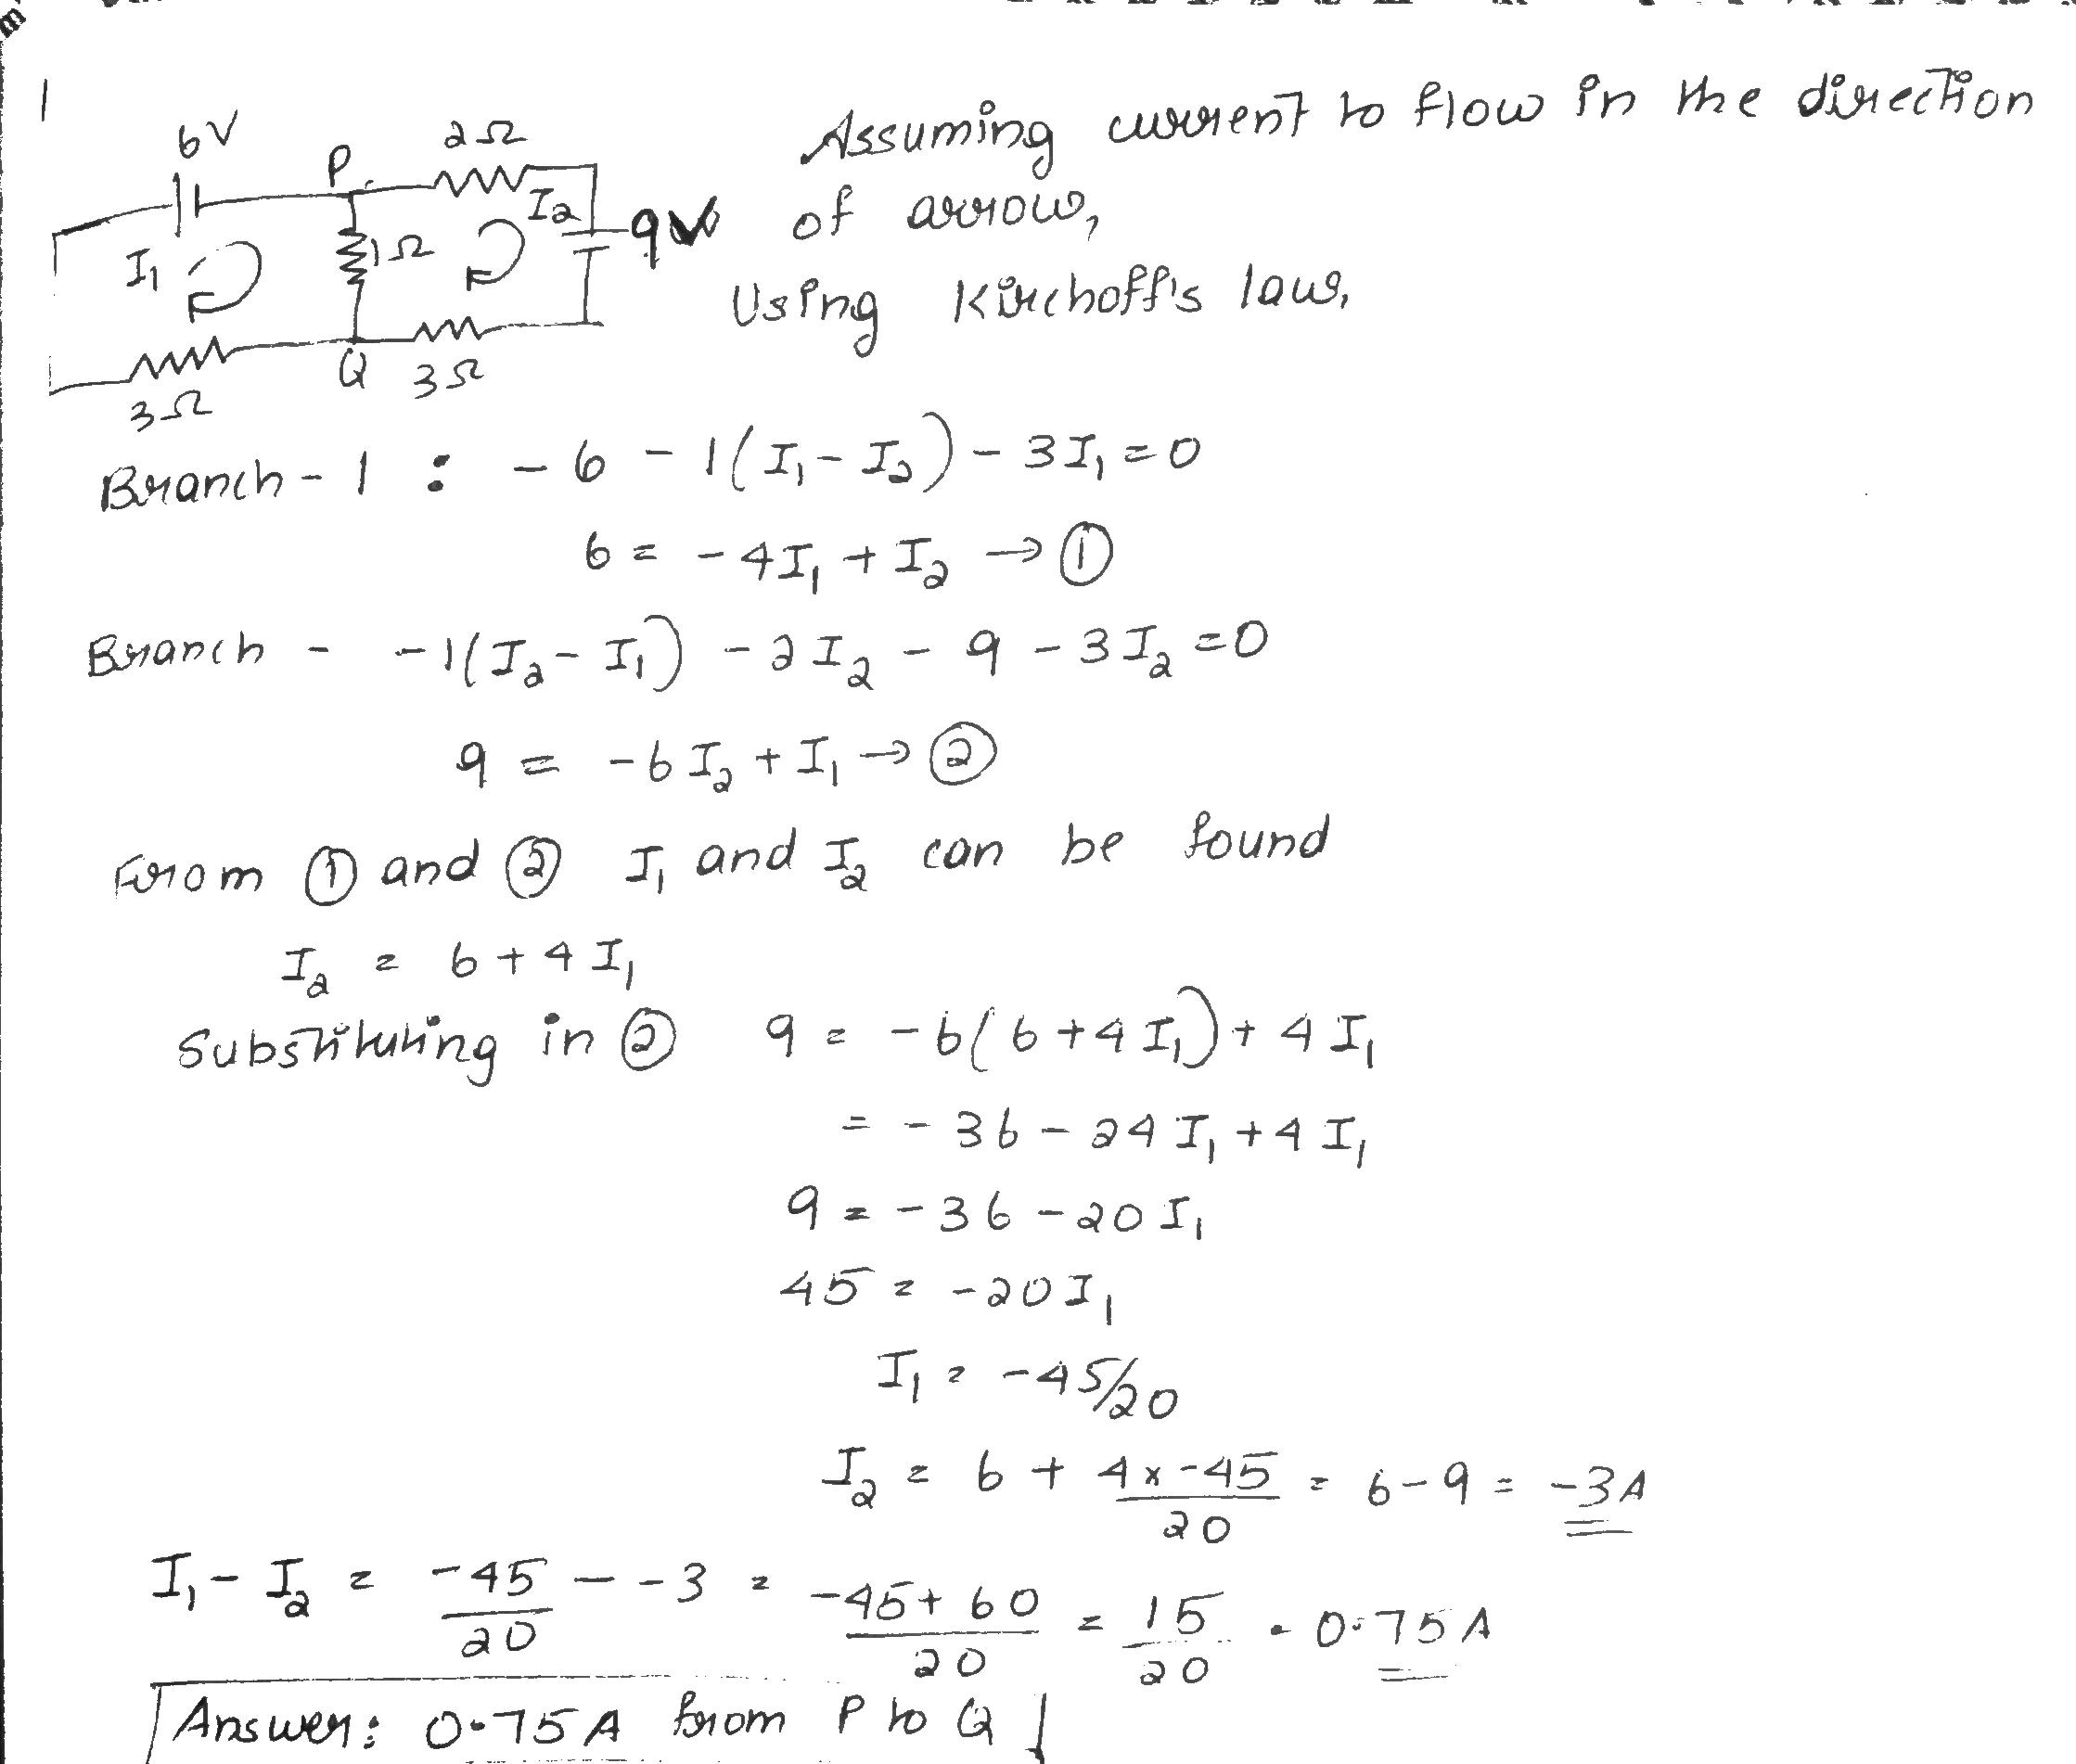 1
6V
P
2Ω
Assuming current to flow in the direction
I2
9V
of arrow,
I1
1Ω
Using Kirchoff's laws,
Q
3Ω
3Ω
Branch - 1 : - 6 - 1(I1 - I2) - 3I1 = 0
6 = - 4I1 + I2 → ①
Branch - - 1(I2 - I1) - 2I2 - 9 - 3I2 = 0
9 = - 6I2 + I1 → ②
From ① and ② I1 and I2 can be found
I2 = 6 + 4I1
Substituting in ② 9 = - 6(6 + 4I1) + 4I1
= - 36 - 24I1 + 4I1
9 = - 36 - 20I1
45 = - 20I1
I1 = - 45/20
I2 = 6 + 4 x - 45 / 20 = 6 - 9 = - 3A
I1 - I2 = - 45 / 20 - - 3 = - 45 + 60 / 20 = 15 / 20 = 0.75A
Answer: 0.75A from P to Q